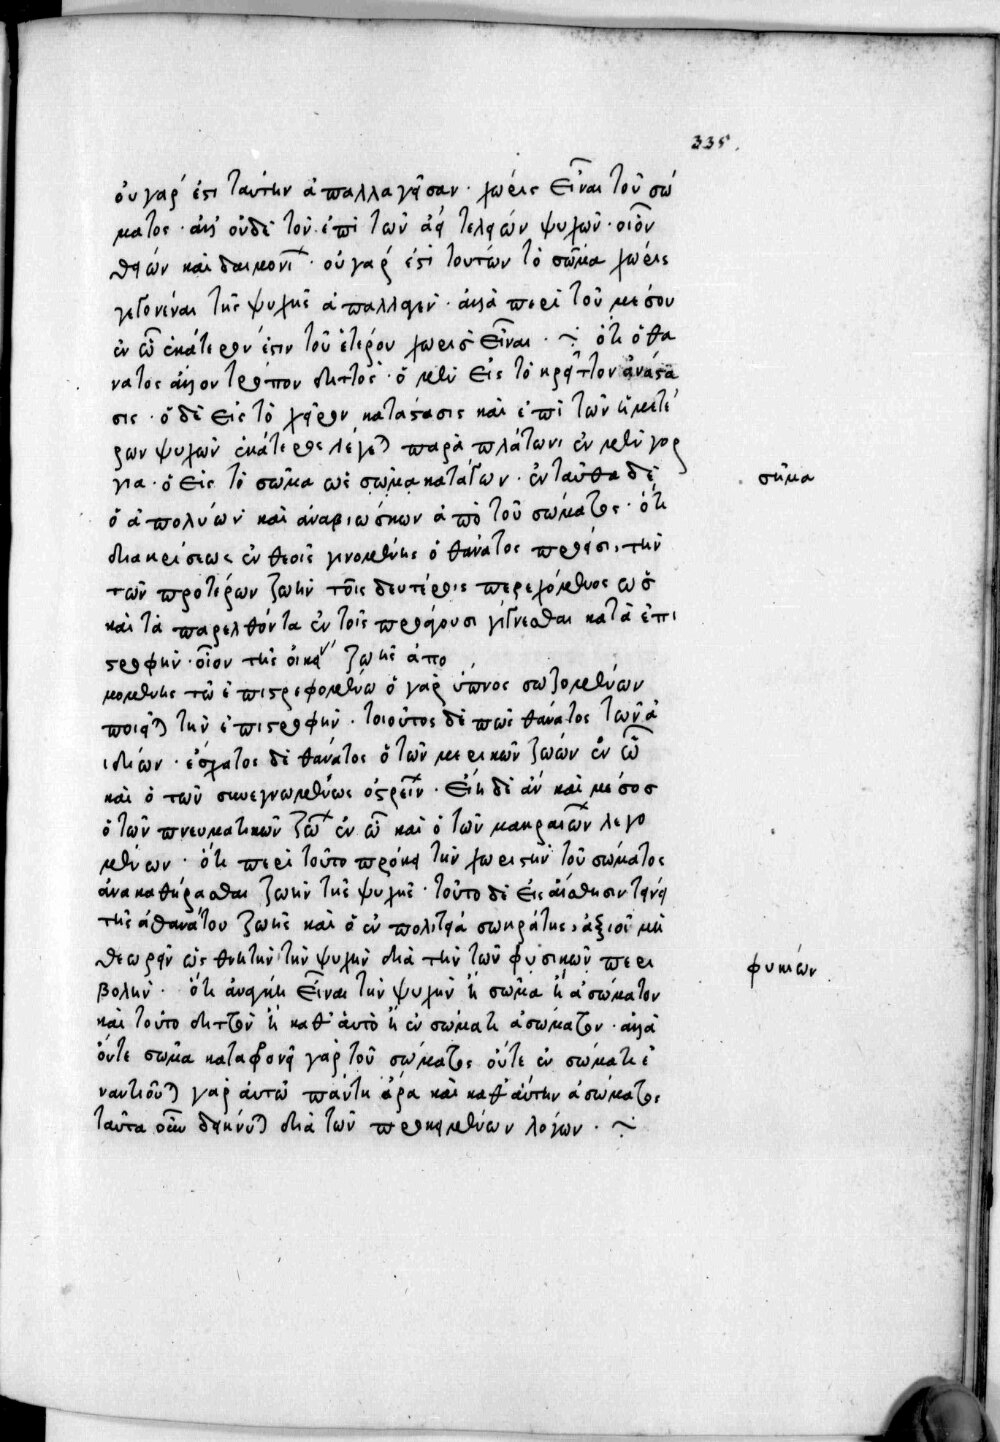 335.
οὐ γάρ ἐστι ταύτην ἀπαλλαγεῖσαν · χωρὶς εἶναι τοῦ σώ
ματος · ἀλλ' οὐδὲ τὸν ἐπὶ τῶν ψυχῶν · οἷον
θείων καὶ δαιμονί · οὐ γάρ ἐστι τούτων τὸ σῶμα χωρὶς
γεγονέναι τῆς ψυχῆς ἀπαλλαγὲν · ἀλλὰ περὶ τοῦ μέσου
ἐν ᾧ ἑκάτερόν ἐστιν τοῦ ἑτέρου χωρὶς εἶναι · ὅτι ὁ θά
νατος ἄλλον τρόπον διττὸς · ὁ μὲν εἰς τὸ κρεῖττον ἀνάστα
σις · ὁ δὲ εἰς τὸ χεῖρον κατάστασις καὶ ἐπὶ τῶν ἡμετέ
ρων ψυχῶν ἑκάτερος λέγεται παρὰ πλάτωνι ἐν μὲν γορ
γία · ὁ εἰς τὸ σῶμα ὡς σῶμα κατάγων · ἐνταῦθα δὲ
σῆμα
ὁ ἀπολύων καὶ ἀναβιώσκων ἀπὸ τοῦ σώματος · ὅτι
διακρίσεως ἐν θεοῖς γινομένης ὁ θάνατος πρόεισι, τὴν
τῶν προτέρων ζωὴν τοῖς δευτέροις παρεχόμενος ὡσ
καὶ τὰ παρελθόντα ἐν τοῖς προάγουσι γίγνεσθαι κατὰ ἐπι
στροφὴν · οἷον τῆς οἰκεί ζωῆς ἀπο
κομένης τῶ ἐπιστρεφομένω ὁ γὰρ ὕπνος σωζομένων
ποιεῖται τὴν ἐπιστροφὴν · τοιοῦτος δέ πως θάνατος τῶν ἀ
ιδίων · ἔσχατος δὲ θάνατος ὁ τῶν μερικῶν ζώων ἐν ᾧ
καὶ ὁ τῶν συνεγνωμένως ὀστρεῖν · εἴη δὲ ἂν καὶ μέσος
ὁ τῶν πνευματικῶν ζώ ἐν ᾧ καὶ ὁ τῶν μακραιών λεγο
μένων · ὅτι περὶ τοῦτο πρόκει τὴν χωριστὴν τοῦ σώματος
ἀνακαθήρασθαι ζωὴν τῆς ψυχῆς · τοῦτο δὲ εἰς αἴσθησιν τείνει
τῆς ἀθανάτου ζωῆς καὶ ὁ ἐν πολιτεία σωκράτης, ἀξιοῖ μὴ
θεωρεῖν ὡς θνητὴν τὴν ψυχὴν διὰ τὴν τῶν φυσικῶν περι
φυκιών
βολὴν · ὅτι ἀνάγκη εἶναι τὴν ψυχὴν ἢ σῶμα ἢ ἀσώματον
καὶ τοῦτο διττὸν ἢ καθ' αὑτὸ ἢ ἐν σώματι ἀσώματον · ἀλλὰ
οὔτε σῶμα καταφρονεῖ γὰρ τοῦ σώματος οὔτε ἐν σώματι ἐ
ναντιοῦται γὰρ αὐτῶ πάντη ἄρα καὶ καθ' αὑτὴν ἀσώματος
ταῦτα οὖν δείκνυται διὰ τῶν προκειμένων λόγων ·